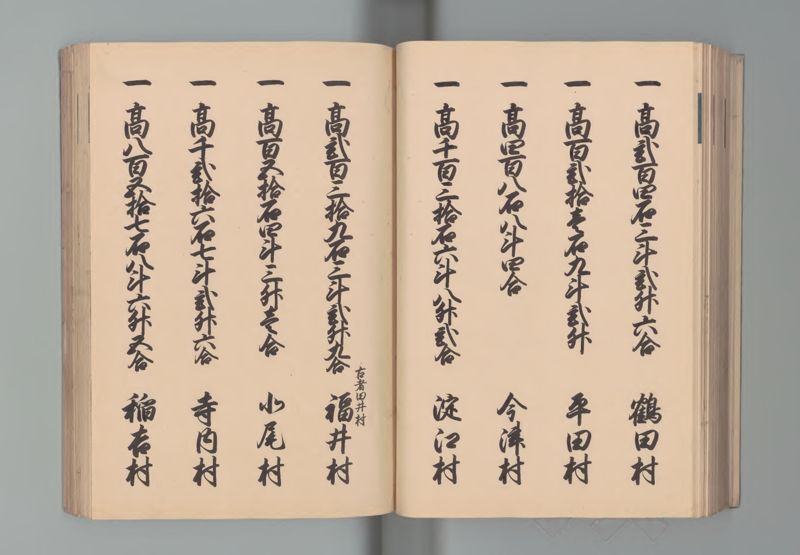 一 高弐百四石三斗弐升六合 鶴田村
一 高百弐拾壱石九斗弐升 平田村
一 高四百八石八斗四合 今津村
一 高千百三拾石六斗八升弐合 淀江村
一 高弐百三拾九石三斗弐升九合 福井村
古者田井村
一 高百五拾石四斗三升壱合 小尾村
一 高千弐拾六石七斗弐升六合 寺内村
一 高八百五拾七石八斗六升五合 稲吉村